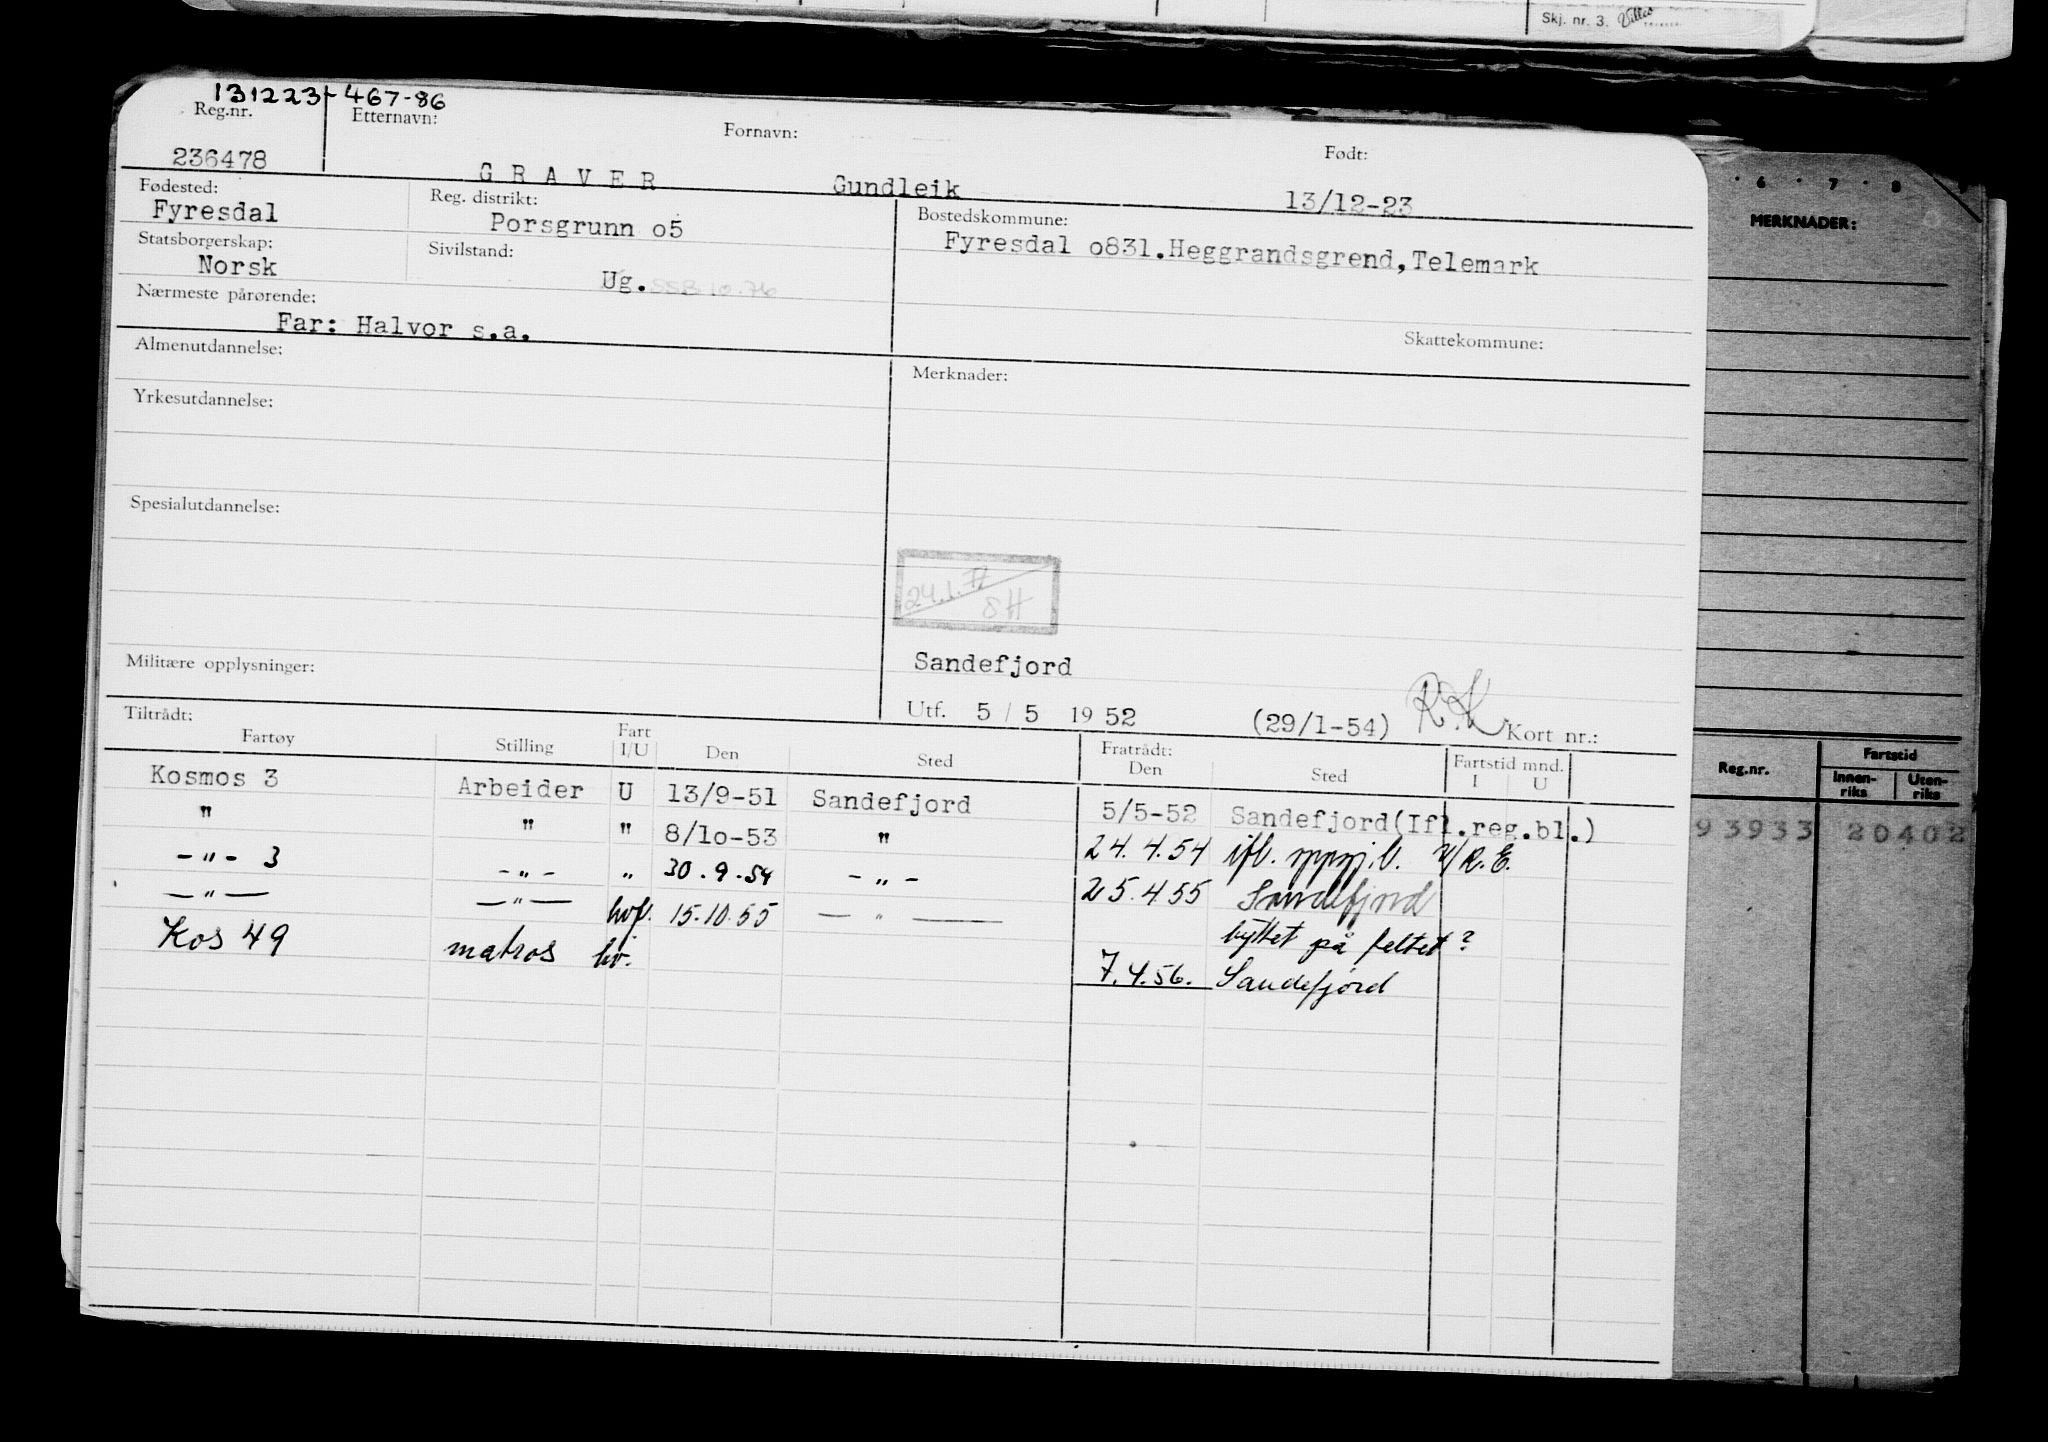 Skj. nr. 3.
131223-467-86
Reg.nr. Etternavn: Fornavn: Født:
236478 GRAVER Gundleik 13/12-23
Fødested: Reg. distrikt: Bostedskommune:
Fyresdal Porsgrunn o5 Fyresdal o831.Heggrandsgrend,Telemark
Statsborgerskap: Sivilstand:
Norsk Ug. SSB 10.76
Nærmeste pårørende:
Far: Halvor s.a. Skattekommune:
Almenutdannelse: Merknader:
Yrkesutdannelse:
Spesialutdannelse:
24.1.77
SH
Militære opplysninger: Sandefjord
Utf. 5 / 5 19 52 (29/1-54) R.K. Kort nr.:
Tiltrådt: Fratrådt:
Fartøy Stilling Fart I/U Den Sted Den Sted Fartstid mnd. I U
Kosmos 3 Arbeider U 13/9-51 Sandefjord 5/5-52 Sandefjord(Ifl.reg.bl.)
" " " 8/1o-53 " 24.4.54 ifl. oppgj.b. R.E.
-"- 3 -"- " 30.9.54 -"- 25.4.55 Sandefjord
-"- -"- hvf. 15.10.55 -"- byttet på feltet?
Kos 49 matros hv. 7.4.56. Sandefjord
6 7 8 9
MERKNADER:
Reg.nr. Fartstid
Innen-riks Uten-riks
93933 20402